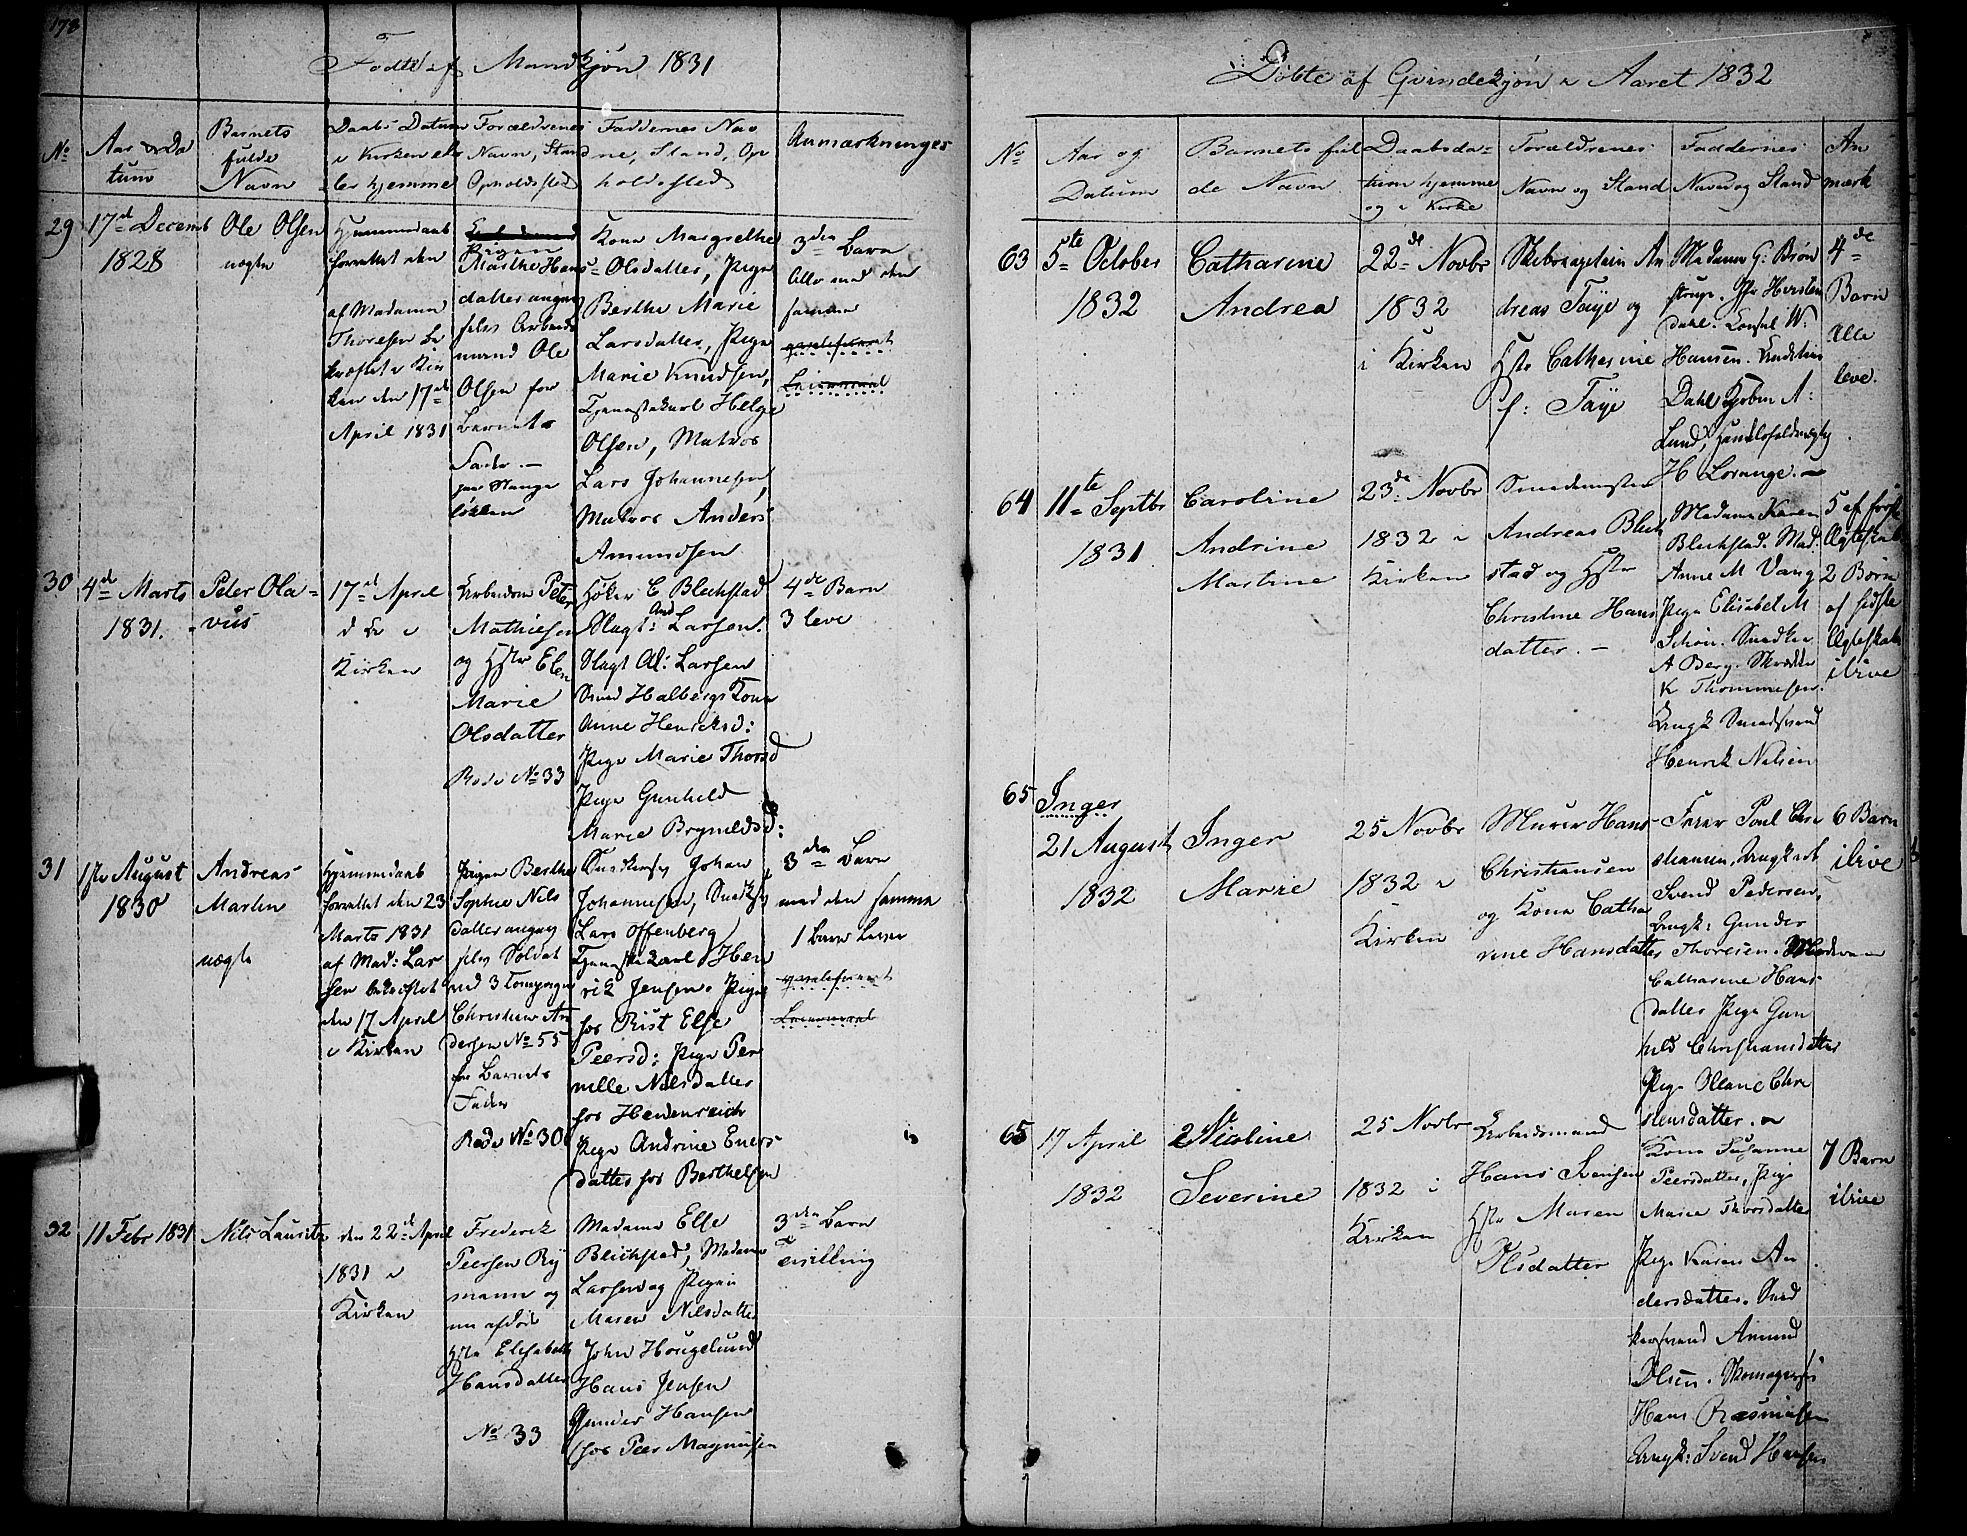 178
Fødte af Mandkjøn 1831
No
Aar & Da
tum
Barnets
fulde
Navn
Daabs Datum
i Kirken el
ler hjemme
Forældrenes
Navn, Stand
Opholdssted
Faddernes Nav
ne, Stand, Op
holdssted
Anmærkninger
29
17de Decemb
1828
Ole Olsen
uægte
Hjemmedaab
forrettet den
af Madame
Thoresen be
kræftet i Kir
ken den 17de
April 1831
Pigen
Marthe Hans
datter angiv
selv Arbeids
mand Ole
Olsen for
Barnets
Fader. —
paa Stange
løkken
Kone Margrethe
Olsdatter, Pige
Berthe Marie
Larsdatter, Pige
Marie Knudsen,
Tjenestekarl Helge
Olsen, Matros
Lars Johannesen,
Matros Anders
Amundsen
3die Barn
Alle med den
samme
qvalificeret
Leiermaal
30
4de Marts
1831.
Peter Ola=
vus
17de April
d. A. i
Kirken
Arbeidsm Peter
Mathiesen
og Hstr Elen
Marie
Olsdatter
Rode No 33
Høker C Blechstad
Slagt: And Larsen.
Slagt Ol: Larsen
Smed Halbergs Kone
Anne Henriksd:
Pige Marie Thorsd
Pige Gunhild
Marie Brynildsd:
4de Barn
3 leve
31
1ste August
1830
Andreas
Martin
uægte
Hjemmedaab
forrettet den 23
Marts 1831
af Mad: Lar
sen bekræftet
den 17 April
i Kirken
Pigen Berthe
Sophie Nils
datter angiv
selv Soldat
ved 3 Compagni
Christian An
dersen No 55
for Barnets
Fader
Rode No 30
Snedkersv Johan
Johannesen, Snedksv
Lars Offenberg
Tjenestekarl Hen
rik Jensen. Pige
hos Rist Else
Peersd: Pige Per
nille Nilsdatter
hos Heidenreich
Pige Andrine Evers
datter hos Berthelsen
3die Barn
med den samme
1 Barn lever
qvalificeret
Leiermaal
32
11 Febr 1831
Nils Lauritz
den 22de April
1831 i
Kirken
Frederik
Peersen Ry
mann og
nu afdøde
Hstr Elisabeth
Hansdatter
No 33
Madame Else
Blichstad, Madame
Larsen og Pigen
Maren Nilsdatter
John Hougelund
Hans Jensen
Gunder Hansen
hos Peer Magnusen
3die Barn
Tvilling
Døbte af Qvindekjøn i Aaret 1832
No
Aar og
Datum
Barnets ful
de Navn
Daabsda=
tum hjemme
og i Kirke
Forældrenes
Navn og Stand
Faddernes
Navn og Stand
An
mærk
63
5te October
1832
Catharine
Andrea
22de Novbr
1832
i Kirken
Skibscaptein An
dreas Faye og
Hstr Catharine
f: Faye
Madame G: Brøn
strup. Jfr Hersleb
Dahl. Consul W:
Hansen. Cruditius
Dahl Kjøbm A:
Lund, Handelsfuldmægtig
H Lorange. —
4de
Barn
Alle
leve.
64
11te Septbr
1831
Caroline
Andrine
Martine
23de Novbr
1832 i
Kirken
Smedemester
Andreas Blech
stad og Hstr
Christine Hans
datter. —
Madame Karen
Blechstad. Mad.
Anne M Vang
Pige Elisabet M
Schou. Snedker
A Berg. Skrædder
K Thommesen.
Ungk Smedsvend
Henrik Nilsen
5 af første
Ægteskab
2 Børn
af sidste
Ægteskab
ilive
65
Inger
21 August
1832
Inger
Marie
25 Novbr
1832 i
Kirken
Murer Hans
Christiansen
og Kone Catha
rine Hansdatter
Farer Poul Chri
stiansen, Ungkarl
Svend Pedersen,
Ungk: Gunder
Thoresen. Madame
Catharine Hans
datter Pige Gun
hild Christiansdatter
Pige Olland Chri
stensdatter. —
6 Barn
ilive
65
17 April
1832
Nicoline
Severine
25 Novbr
1832 i
Kirken
Arbeidsmand
Hans Svensen
Hstr Maren
Olsdatter
Kone Susanne
Peersdatter, Pige
Marie Thorsdatter
Pige Karen An
dersdatter. Sned
kersvend Amund
Olsen. Skomagersv
Hans Rasmusen
Ungk: Svend Hansen
7 Barn
ilive